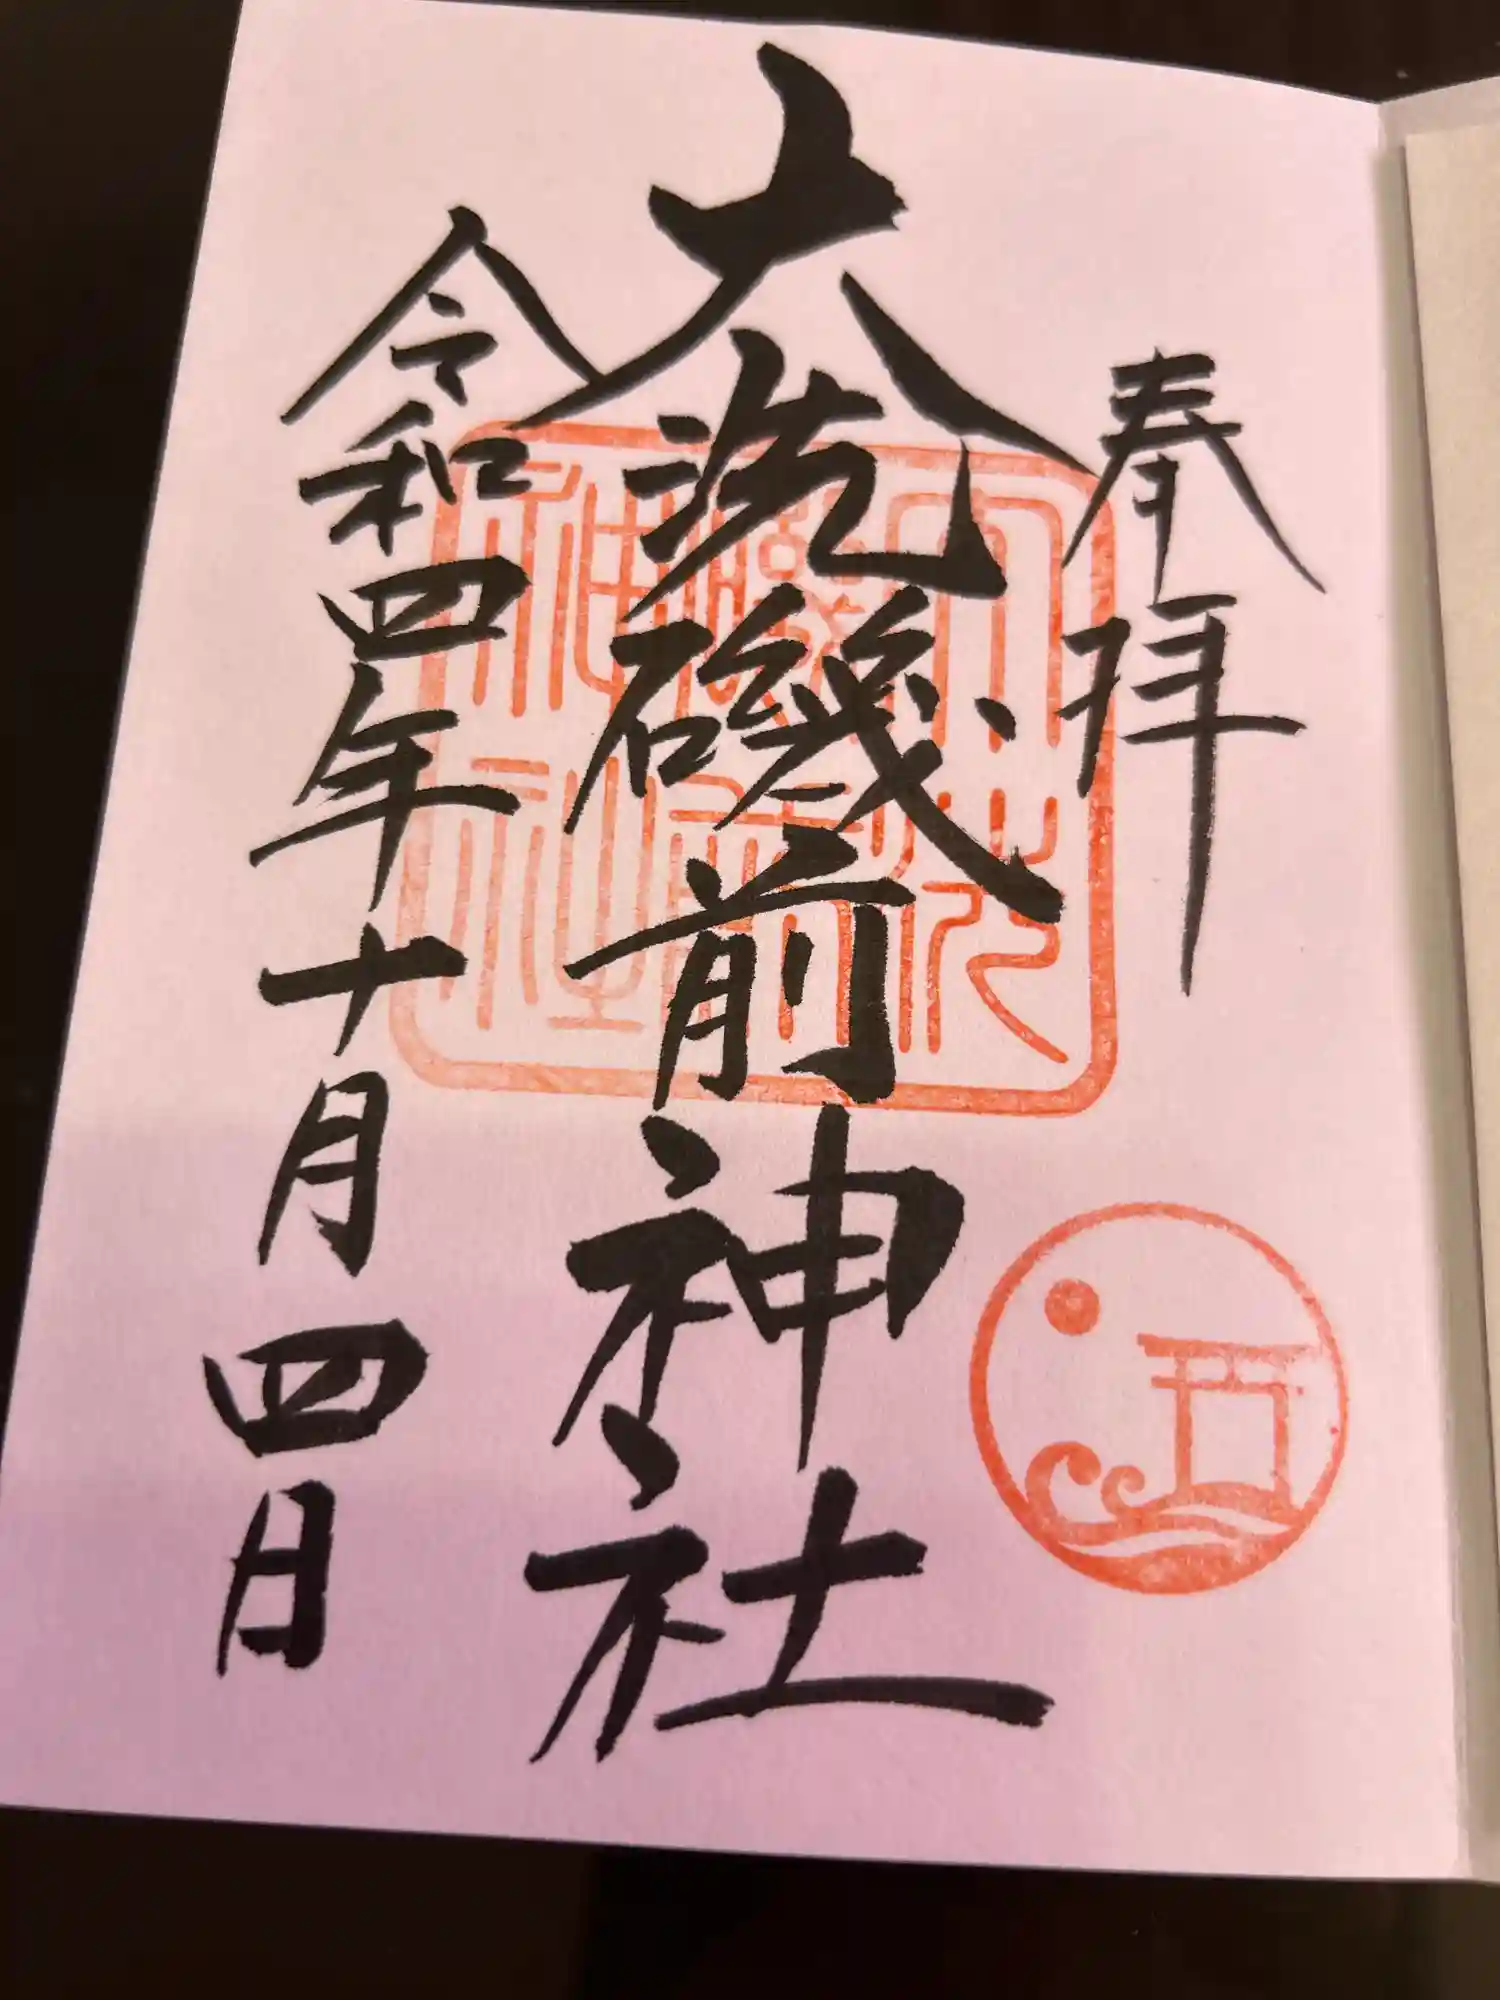 奉拝
大洗磯前神社
令和四年十月四日
大洗
磯前
神社